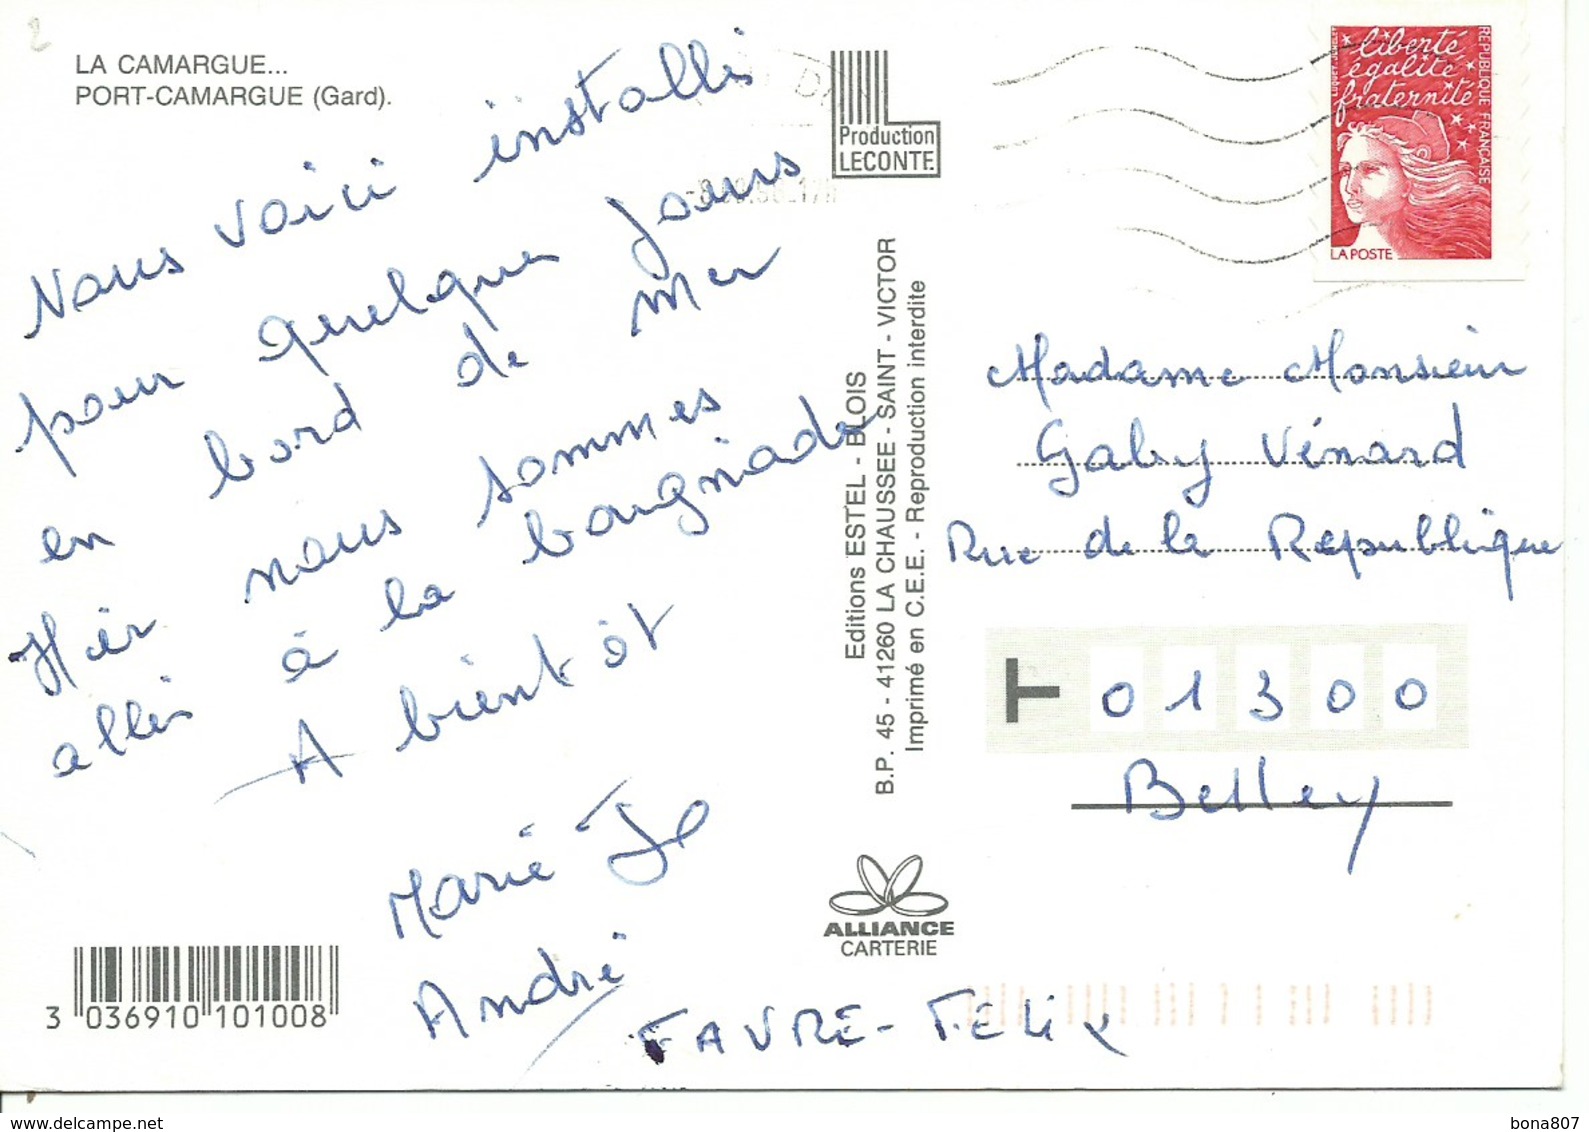 LA CAMARGUE...
PORT-CAMARGUE (Gard).
Nous voici installés
pour quelques jours
en bord de mer
Hier nous sommes
allés à la baignade
A bientôt
Marie Jo
André
FAVRE-FELIX
3 036910 101008
Production
LECONTE
Editions ESTEL - BLOIS
B.P. 45 - 41260 LA CHAUSSEE - SAINT - VICTOR
Imprimé en C.E.E. - Reproduction interdite
ALLIANCE
CARTERIE
liberté
égalité
fraternité
REPUBLIQUE FRANÇAISE
LA POSTE
Madame Monsieur
Gaby Vénard
Rue de la République
01300
Belley
bona807